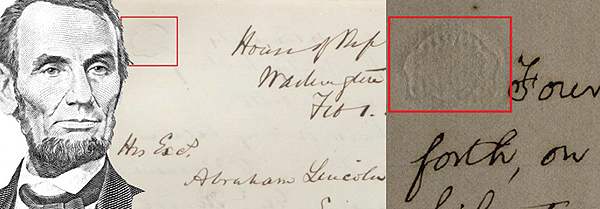 House of Rep
Washington
Feb 1.
His Exc.
Abraham Lincoln
Four
forth, on